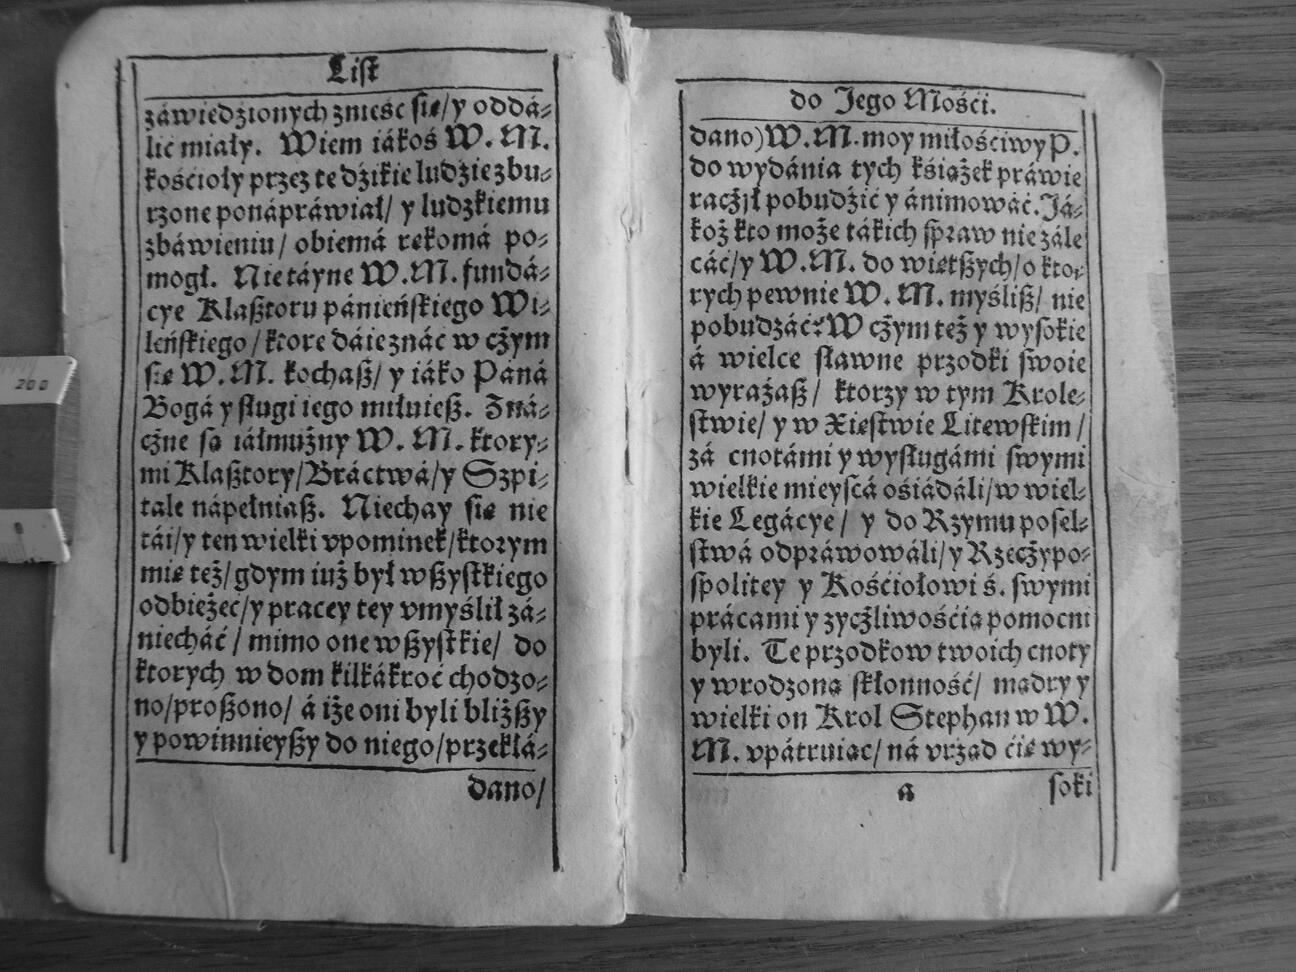 List
záwiedzionych znieść się/ y oddá-
lić miáły. Wiem iákoś W. M.
kościoły przez te dzikie ludzie zbu-
rzone ponápráwiał/ y ludzkiemu
zbáwieniu/ obiemá rękomá po-
mogł. Nie táyne W. M. fundá-
cye Klasztoru pánieńskiego Wi-
leńskiego/ ktore dáie znáć w czym
się W. M. kochasz/ y iáko Páná
Bogá y sługi iego miłuiesz. Zná-
czne są iáłmużny W. M. ktory-
mi Klasztory/ Bráctwá/ y Szpi-
tale nápełniasz. Niechay się nie
tái/ y ten wielki vpominek/ ktorym
mię też/ gdym iuż był wszystkiego
odbieżeć/ y pracey tey vmyślił zá-
niecháć/ mimo one wszystkie/ do
ktorych w dom kilkákroć chodzo-
no/ proszono/ á iże oni byli bliższy
y powinnieyszy do niego/ przekłá-
dano/
do Jego Mości.
dano) W. M. moy miłościwy P.
do wydánia tych książek práwie
raczył pobudzić y ánimowáć. Já-
koż kto może tákich spraw nie zále
cáć/ y W. M. do więtszych/ o kto-
rych pewnie W. M. myślisz/ nie
pobudzáć? W czym też y wysokie
á wielce sławne przodki swoie
wyrażasz/ ktorzy w tym Krole-
stwie/ y w Xięstwie Litewskim/
zá cnotámi y wysługámi swymi
wielkie mieyscá ośiádáli/ w wiel-
kie Legácye/ y do Rzymu posel-
stwá odpráwowáli/ y Rzeczypo-
spolitey y Kościołowi ś. swymi
prácami y życzliwościa pomocni
byli. Te przodkow twoich cnoty
y wrodzoną skłonność/ mądry y
wielki on Krol Stephan w W.
M. vpátruiąc/ ná vrząd cię wy-
a
soki